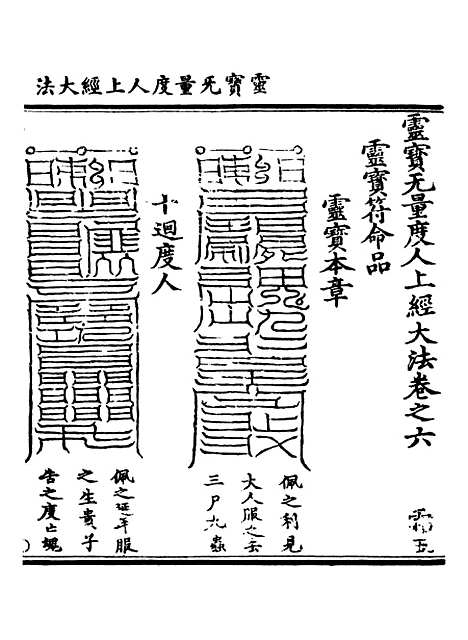 靈寶无量度人上經大法
靈寶无量度人上經大法卷之六
霜五
靈寶符命品
靈寶本章
佩之利見
大人服之去
三尸九蟲
十迴度人
佩之延年服
之生貴子
告之度亡魂